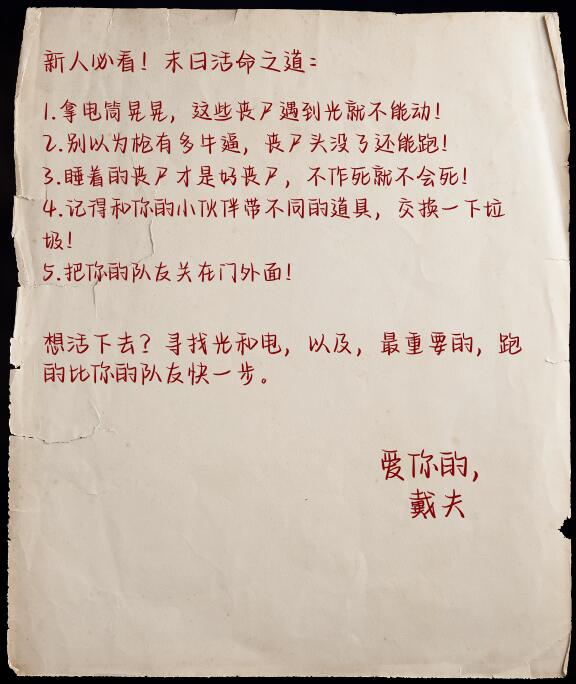 新人必看！末日活命之道：
1.拿电筒晃晃，这些丧尸遇到光就不能动！
2.别以为枪有多牛逼，丧尸头没了还能跑！
3.睡着的丧尸才是好丧尸，不作死就不会死！
4.记得和你的小伙伴带不同的道具，交换一下垃
圾！
5.把你的队友关在门外面！
想活下去？寻找光和电，以及，最重要的，跑
的比你的队友快一步。
爱你的，
戴夫